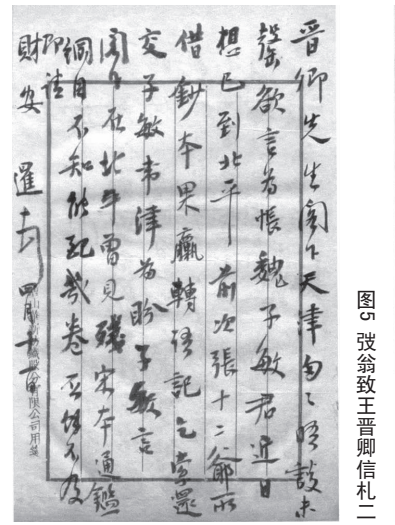 晋卿先生阁下天津匆匆晤谈未
罄欲言为怅魏子敏君近日
想已到北平前次張十二爺所
借鈔本果臝轉語記乞掌還
交子敏帶津为盼子敏言
閣下在北平曾見殘宋本通鑑
綱目不知能配幾卷否餘不及
即请
財安 暹
四月十一日
限公司用箋
图5 弢翁致王晋卿信札二